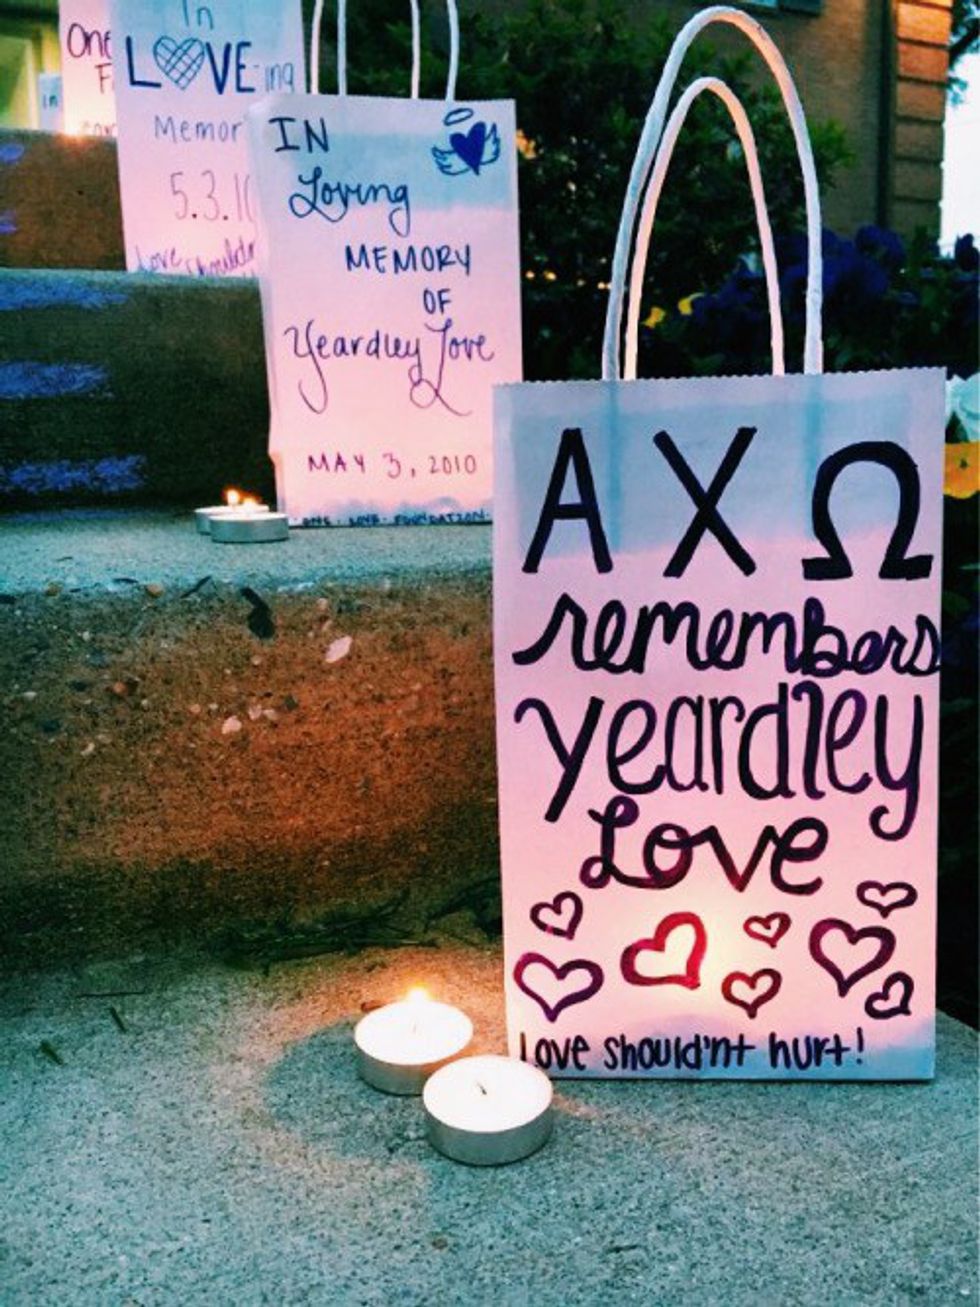 One
F
In
LOVE-ing
Memor
5.3.10
Love shouldn
IN
Loving
MEMORY
OF
Yeardley Love
MAY 3, 2010
ONE · LOVE · FOUNDATION
ΑΧΩ
remembers
yeardley
Love
Love should'nt hurt!